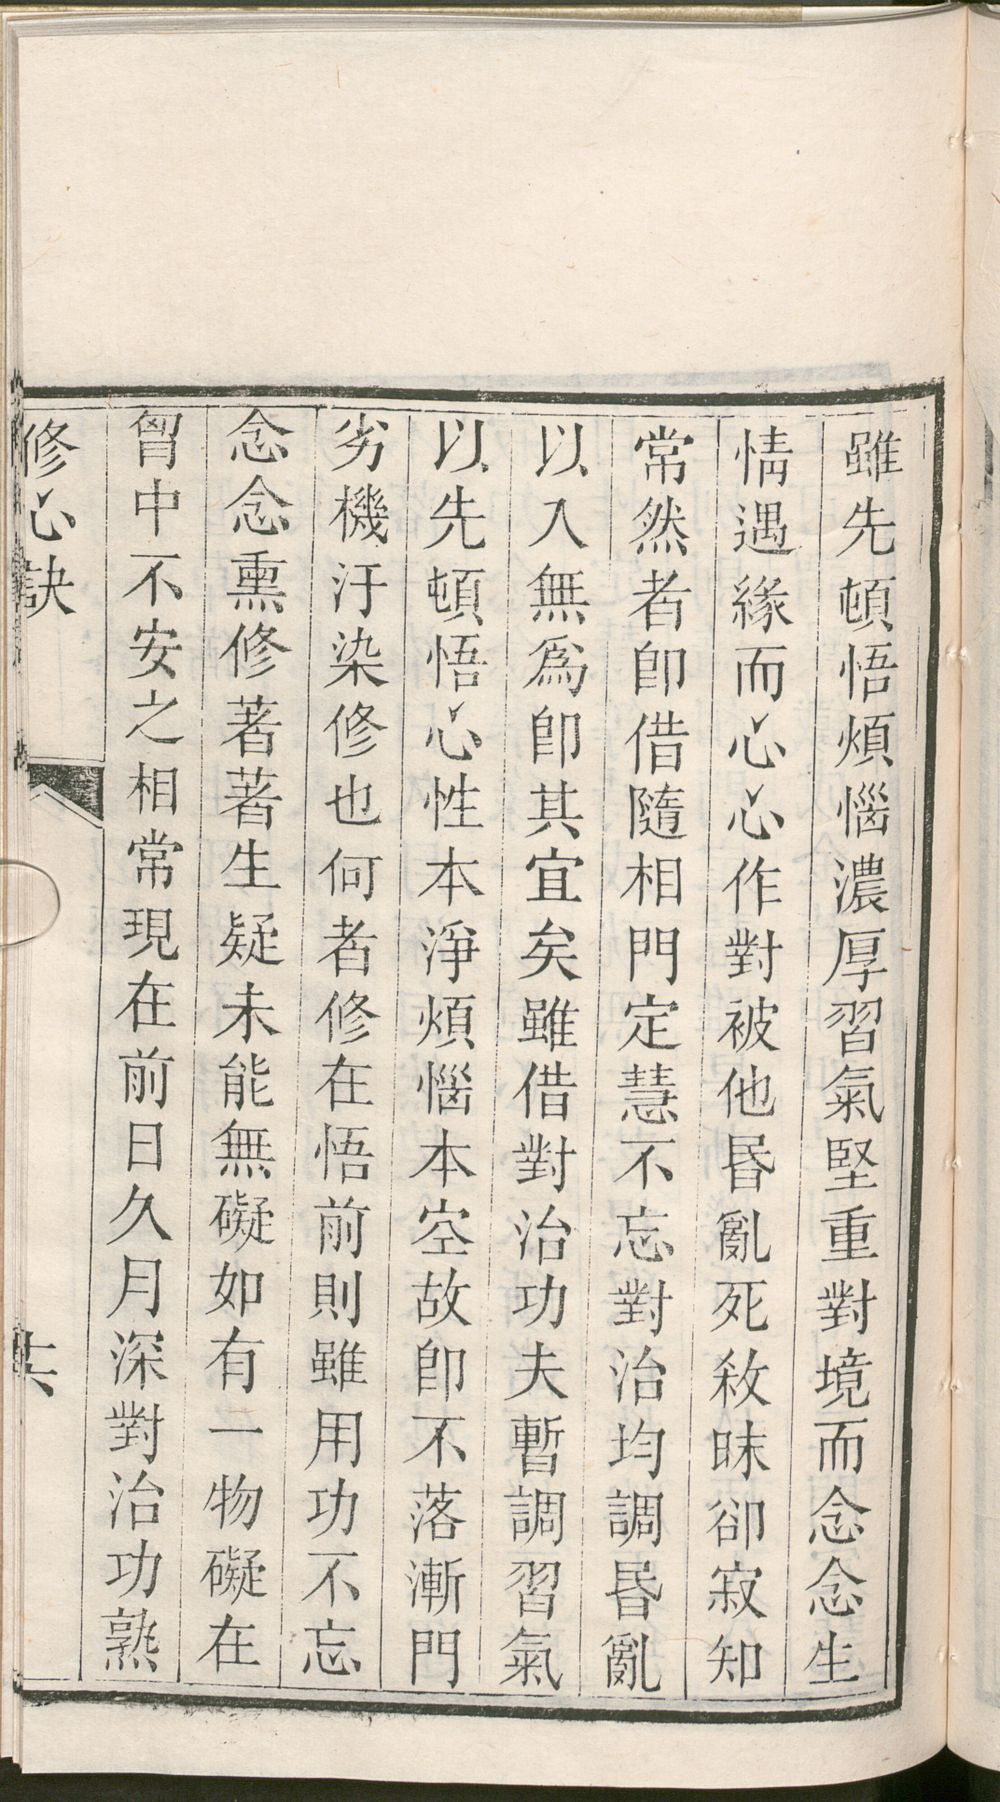 雖先頓悟煩惱濃厚習氣堅重對境而念念生
情遇緣而心心作對被他昬亂死殺昧卻寂知
常然者卽借隨相門定慧不忘對治均調昬亂
以入無爲卽其宜矣雖借對治功夫暫調習氣
以先頓悟心性本淨煩惱本空故卽不落漸門
劣機汙染修也何者修在悟前則雖用功不忘
念念熏修著著生疑未能無礙如有一物礙在
胷中不安之相常現在前日久月深對治功熟
修心訣